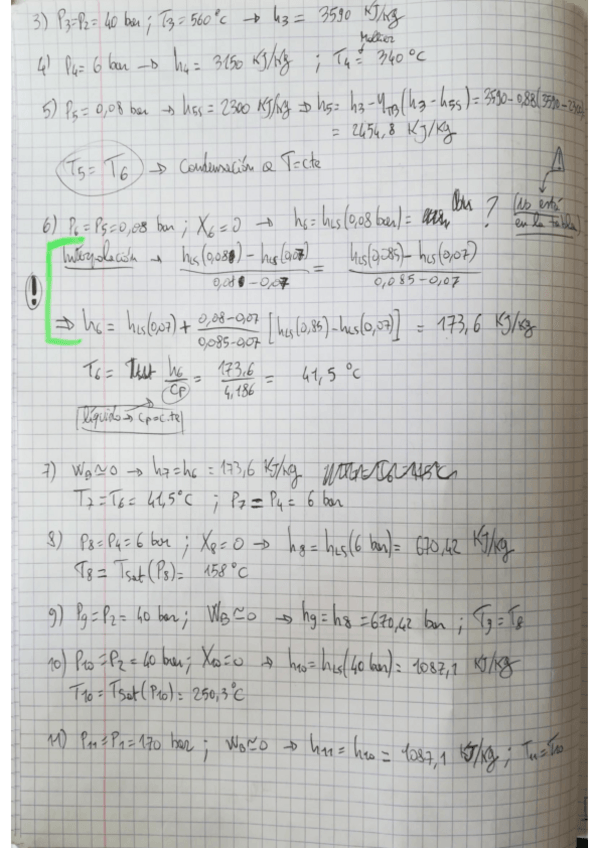 3) P₃=P₂= 40 bar ; T₃=560°C → h₃ = 3590 KJ/kg
Mollier
4) P₄= 6 bar → h₄ = 3150 KJ/kg ; T₄ = 340°C
5) P₅=0,08 bar → h₅ₛ=2300 KJ/kg ⇒ h₅= h₃-η_TB(h₃-h₅ₛ)=3590-0,88(3590-2300)
= 2454,8 KJ/kg
T₅= T₆ → Condensación a T=cte
6) P₆=P₅=0,08 bar ; X₆=0 → h₆= hLS(0,08 bar)= ? (No está
en la tabla)
Interpolación → hLS(0,08)-hLS(0,07) / 0,08-0,07 = hLS(0,085)-hLS(0,07) / 0,085-0,07
!
⇒ h₆= hLS(0,07)+ 0,08-0,07 / 0,085-0,07 [hLS(0,85)-hLS(0,07)] = 173,6 KJ/kg
T₆ = h₆ / Cp = 173,6 / 4,186 = 41,5 °C
líquido→Cp=cte
7) WB≃0 → h₇=h₆=173,6 KJ/kg
T₇=T₆= 41,5°C ; P₇=P₄= 6 bar
8) P₈=P₄=6 bar ; X₈=0 → h₈=hLS(6 bar)= 670,42 KJ/kg
T₈= Tsat(P₈)= 158°C
9) P₉=P₂= 40 bar; WB≃0 → h₉=h₈=670,42 bar ; T₉=T₈
10) P₁₀=P₂=40 bar; X₁₀=0 → h₁₀=hLS(40 bar)=1087,1 KJ/kg
T₁₀=Tsat(P₁₀)= 250,3°C
11) P₁₁=P₁=170 bar ; WB≃0 → h₁₁= h₁₀ = 1087,1 KJ/kg ; T₁₁=T₁₀